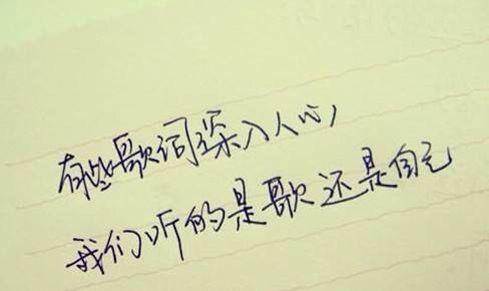 有些歌词深入人心,
我们听的是歌还是自己